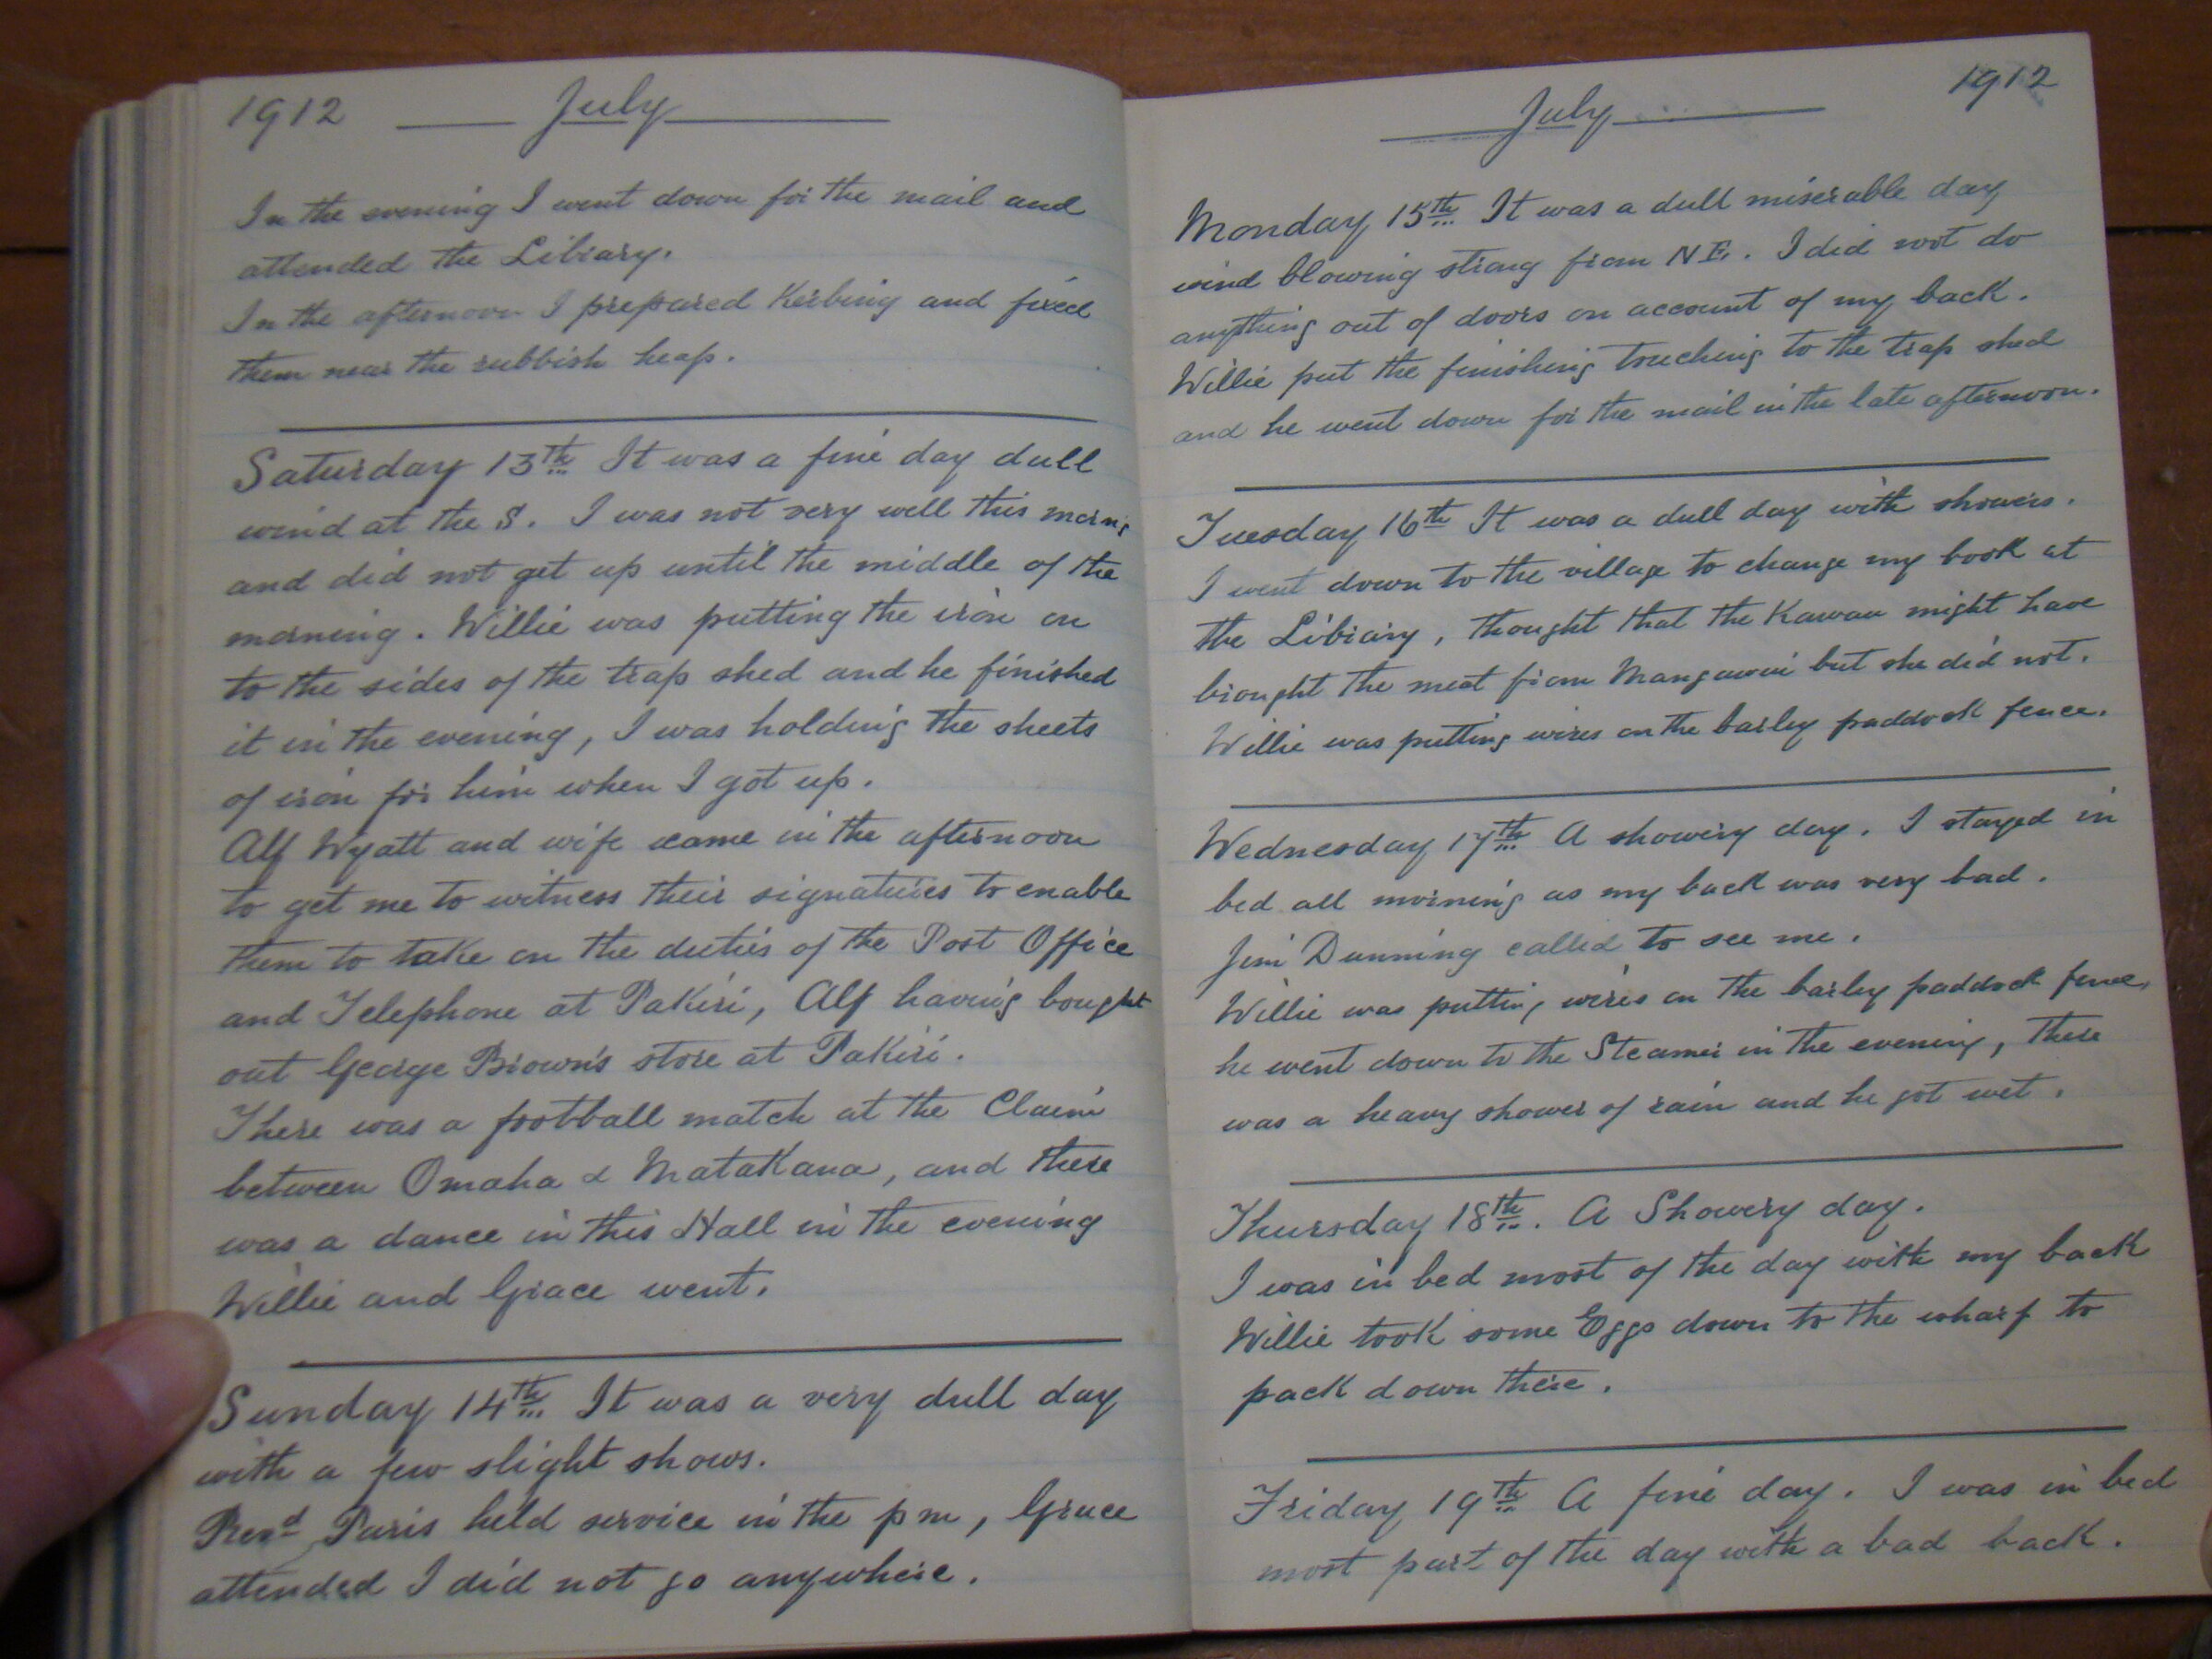 1912 July
In the evening I went down for the mail and
attended the Library.
In the afternoon I prepared Kerbing and fixed
them near the rubbish heap.
Saturday 13th It was a fine day dull
wind at the S. I was not very well this morng
and did not get up until the middle of the
morning. Willie was putting the iron on
to the sides of the trap shed and he finished
it in the evening, I was holding the sheets
of iron for him when I got up.
Alf Wyatt and wife came in the afternoon
to get me to witness their signatures to enable
them to take on the duties of the Post Office
and Telephone at Pakiri, Alf having bought
out George Brown's store at Pakiri.
There was a football match at the Claim
between Omaha & Matakana, and there
was a dance in this Hall in the evening
Willie and Grace went.
Sunday 14th It was a very dull day
with a few slight shows.
Revd Paris held service in the pm, Grace
attended I did not go anywhere.
July 1912
Monday 15th It was a dull miserable day
wind blowing strong from NE. I did not do
anything out of doors on account of my back.
Willie put the finishing truching to the trap shed
and he went down for the mail in the late afternoon.
Tuesday 16th It was a dull day with showers.
I went down to the village to change my book at
the Library, thought that the Kawau might have
brought the meat from Mangawai but she did not.
Willie was putting wires on the barley paddock fence.
Wednesday 17th A showery day. I stayed in
bed all morning as my back was very bad.
Jim Dunning called to see me.
Willie was putting wires on the barley paddock fence,
he went down to the Steamer in the evening, there
was a heavy shower of rain and he got wet.
Thursday 18th. A Showery day.
I was in bed most of the day with my back
Willie took some Eggs down to the wharf to
pack down there.
Friday 19th A fine day. I was in bed
most part of the day with a bad back.